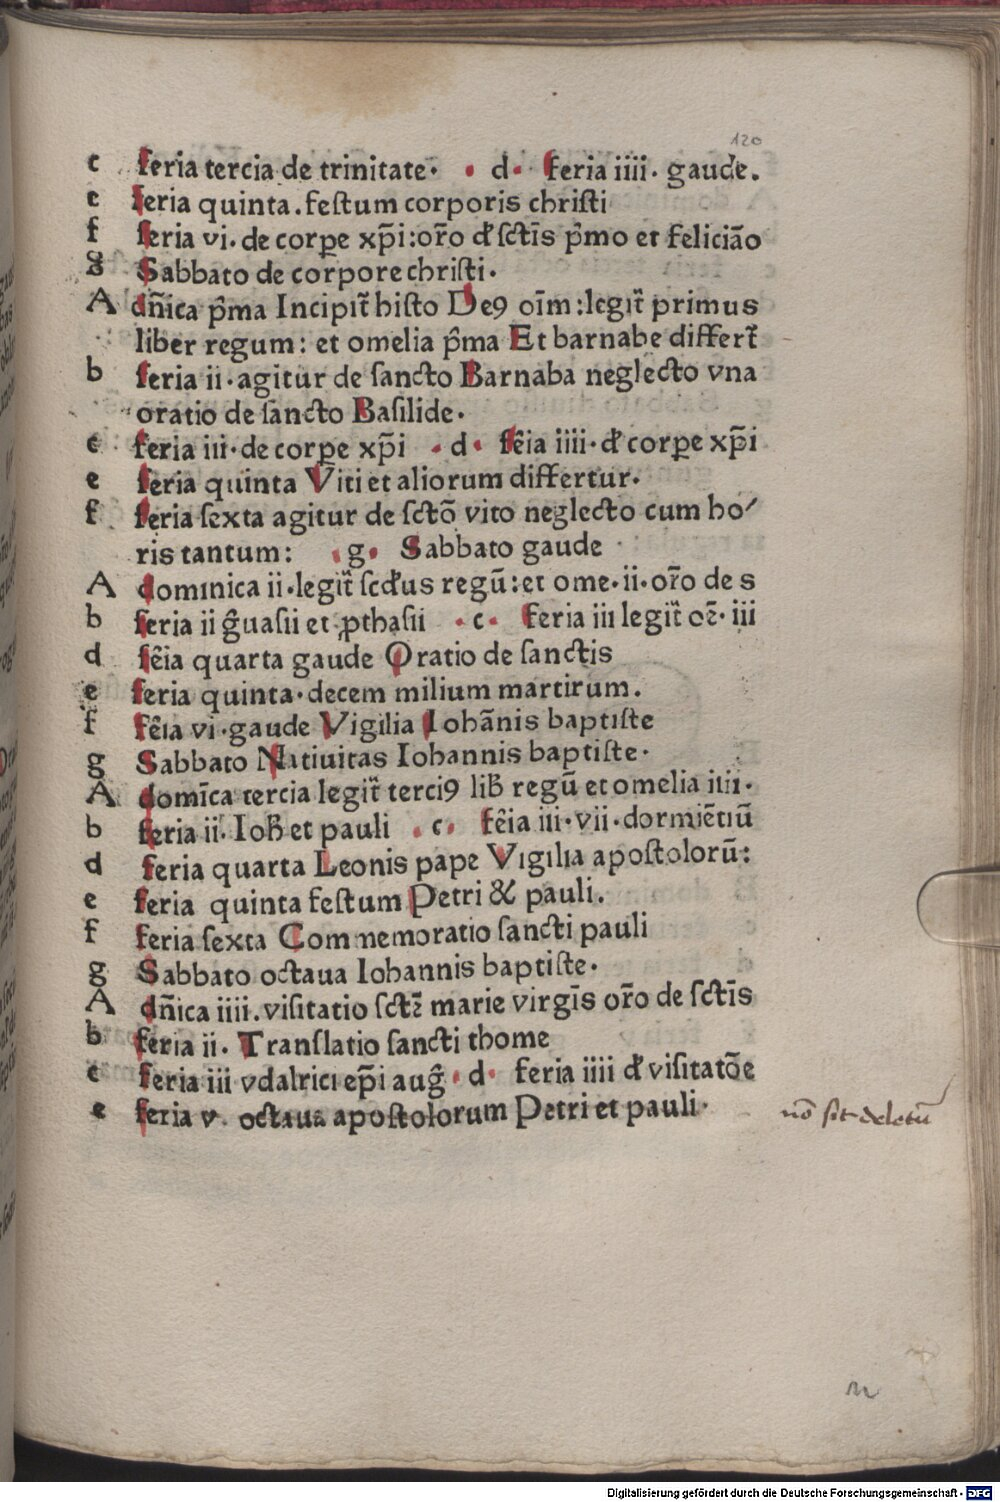 120
c feria tercia de trinitate· · d· feria iiii· gaude.
e feria quinta.festum corporis christi
f feria vi. de corꝑe xp̄i:or̄o đ sct̄is p̄mo et felicia̅o
g Sabbato de corpore christi·
A dn̄ica p̄ma Incipit᷑ histo De9 oı̄m:legit᷑ primus
liber regum: et omelia p̄ma Et barnabe differt᷑
b feria ii·agitur de sancto Barnaba neglecto vna
oratio de sancto Basilide·
c feria iii·de corꝑe xp̄i · d· fēia iiii·đ corꝑe xp̄i
e feria quinta Viti et aliorum differtur·
f feria sexta agitur de sctō vito neglecto cum ho⸗
ris tantum: ·g· Sabbato gaude
A dominica ii·legit᷑ scđus regū:et ome·ii·or̄o de s
b feria ii ḡuasii et ꝓthasii ·c· feria iii legit᷑ oē·iii
d fēia quarta gaude Oratio de sanctis
e feria quinta·decem milium martirum.
f fēia vi·gaude Vigilia Iohānis baptiste
g Sabbato Natiuitas Iohannis baptiste·
A domīca tercia legit᷑ terci9 lib̄ regū et omelia iiii·
b feria ii. Ioh̄ et pauli ·c· fēia iii·vii·dormiētiū
d feria quarta Leonis pape Vigilia apostolorū:
e feria quinta festum Petri & pauli.
f feria sexta Commemoratio sancti pauli
g Sabbato octaua Iohannis baptiste·
A dn̄ica iiii.visitatio sctē marie virgīs or̄o de sct̄is
b feria ii. Translatio sancti thome
c feria iii vdalrici ep̄i aug̅·d· feria iiii đ visitatōe
e feria v. octaua apostolorum Petri et pauli· nō sit deletū
Digitalisierung gefördert durch die Deutsche Forschungsgemeinschaft · DFG